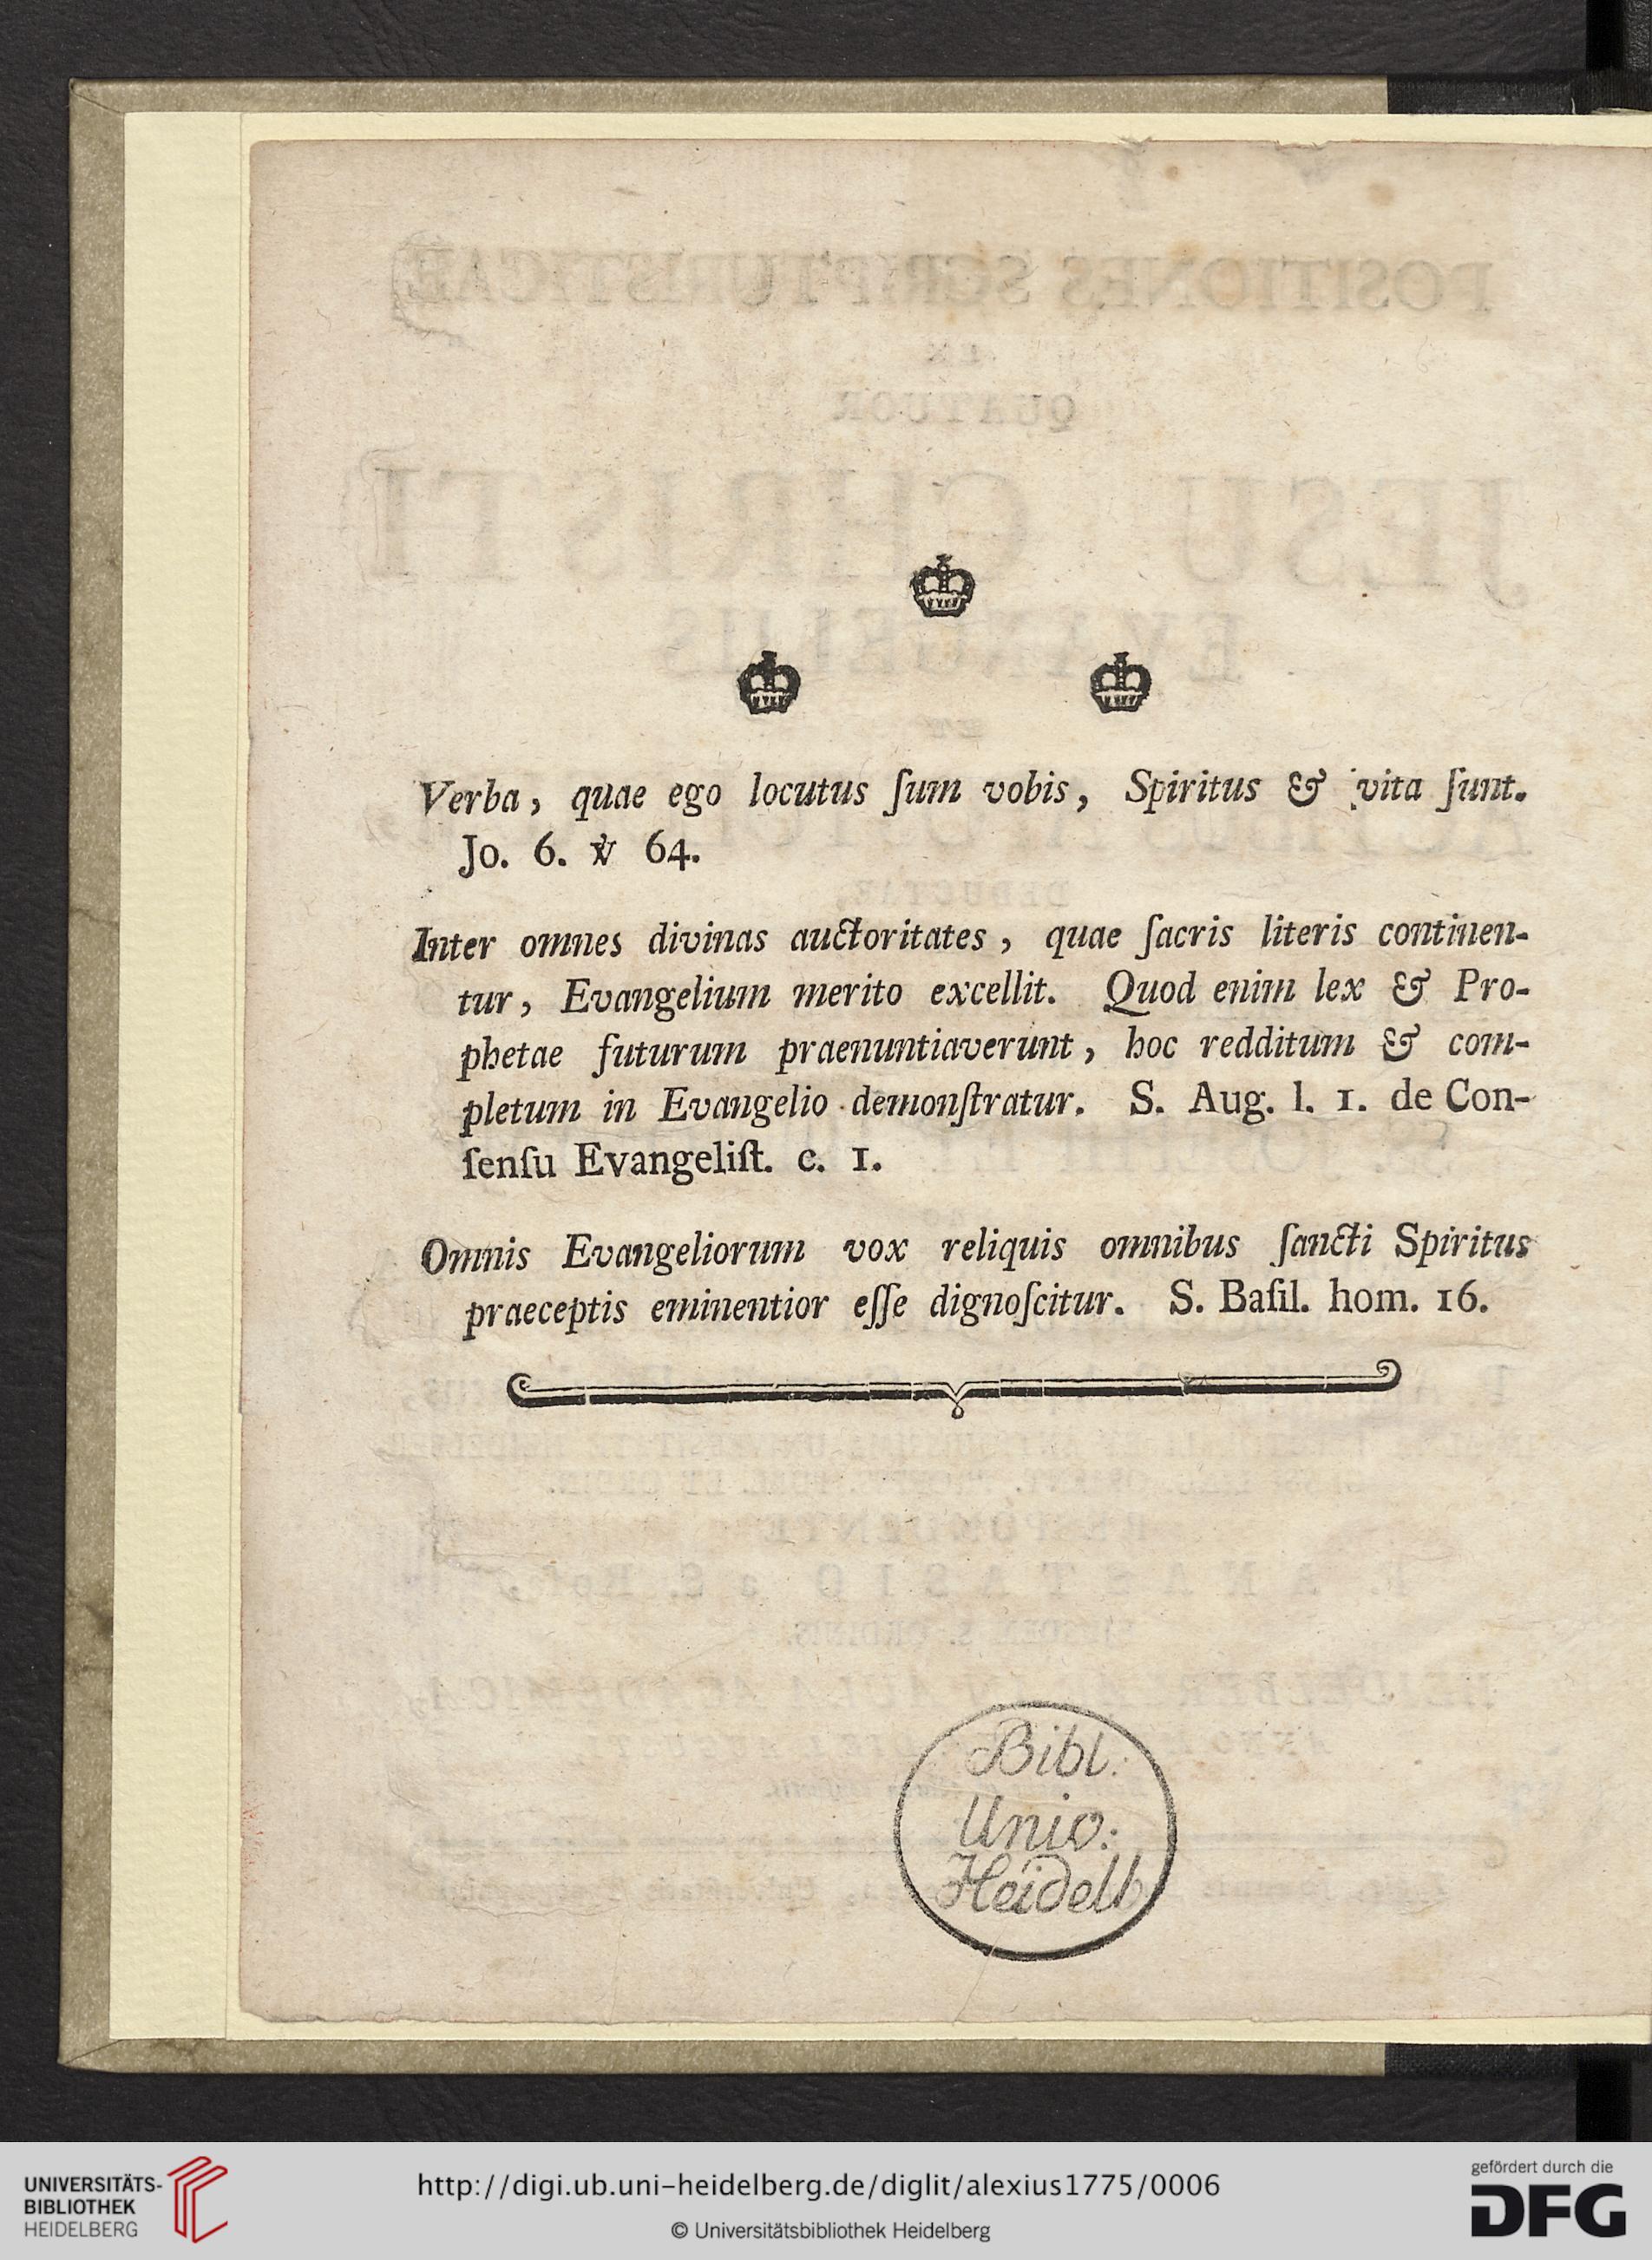 Verba, quae ego locutus ſum vobis, Spiritus & vita ſunt.
Jo. 6. ℣ 64.
Inter omnes divinas auctoritates, quae ſacris literis continen-
tur, Evangelium merito excellit. Quod enim lex & Pro-
phetae futurum praenuntiaverunt, hoc redditum & com-
pletum in Evangelio demonſtratur. S. Aug. l. 1. de Con-
ſenſu Evangeliſt. c. 1.
Omnis Evangeliorum vox reliquis omnibus ſancti Spiritus
praeceptis eminentior eſſe dignoſcitur. S. Baſil. hom. 16.
Bibl:
Univ:
Heidelb
UNIVERSITÄTS-
BIBLIOTHEK
HEIDELBERG
http://digi.ub.uni-heidelberg.de/diglit/alexius1775/0006
© Universitätsbibliothek Heidelberg
gefördert durch die
DFG